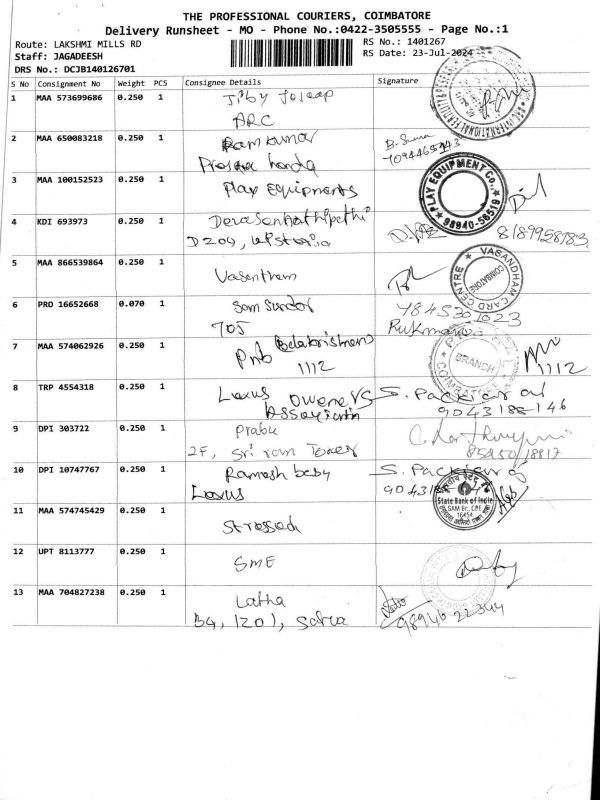 THE PROFESSIONAL COURIERS, COIMBATORE
Delivery Runsheet - MO - Phone No.:0422-3505555 - Page No.:1
Route: LAKSHMI MILLS RD
RS No.: 1401267
Staff: JAGADEESH
RS Date: 23-Jul-2024
DRS No.: DCJB140126701
S No Consignment No Weight PCS Consignee Details Signature
1 MAA 573699686 0.250 1
ARC
2 MAA 650083218 0.250 1 Ramkumar
honda
3 MAA 100152523 0.250 1 Play Equipments
PLAY EQUIPMENT Co.,
98940-56519
4 KDI 693973 0.250 1
D204, 8189958983
5 MAA 866539864 0.250 1 Vasantham
VASANDHAM CARD CENTRE
COIMBATORE
6 PRO 16652668 0.070 1 Sam Sundar 9845301023
705 Rukmani
7 MAA 574062926 0.250 1 Pnb Balakrishnan
1112 1112
BRANCH
COIMBATORE
8 TRP 4554318 0.250 1 Lexus Owners S. Packiaraj
Association 9043188146
9 DPI 303722 0.250 1 Prabu
2F, Sri ram Tower
10 DPI 10747767 0.250 1 Ramesh baby S. Packiaraj
Lexus
State Bank of India
SAM Br., CBE
16454
11 MAA 574745429 0.250 1 Stressed
12 UPT 8113777 0.250 1 SME
13 MAA 704827238 0.250 1 Latha
B4, 1201, 98946 22344